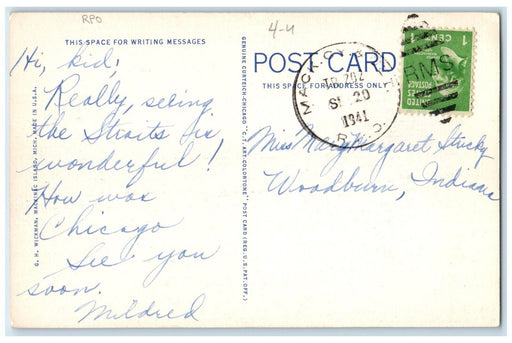 RPO
4-4
THIS SPACE FOR WRITING MESSAGES
Hi, kid,
Really, seeing
the Straits is
wonderful!
How was
Chicago
See you
soon.
Mildred
G. H. WICKMAN, MACKINAC ISLAND, MICH. MADE IN U.S.A.
GENUINE CURTEICH-CHICAGO "C.T. ART-COLORTONE" POST CARD (REG. U.S. PAT. OFF.)
POST CARD
THIS SPACE FOR ADDRESS ONLY
MACK. CY &
TR 202
20
1941
R.P.O.
RMS
1 CENT 1
Miss Mary Margaret
Woodburn, Indiana